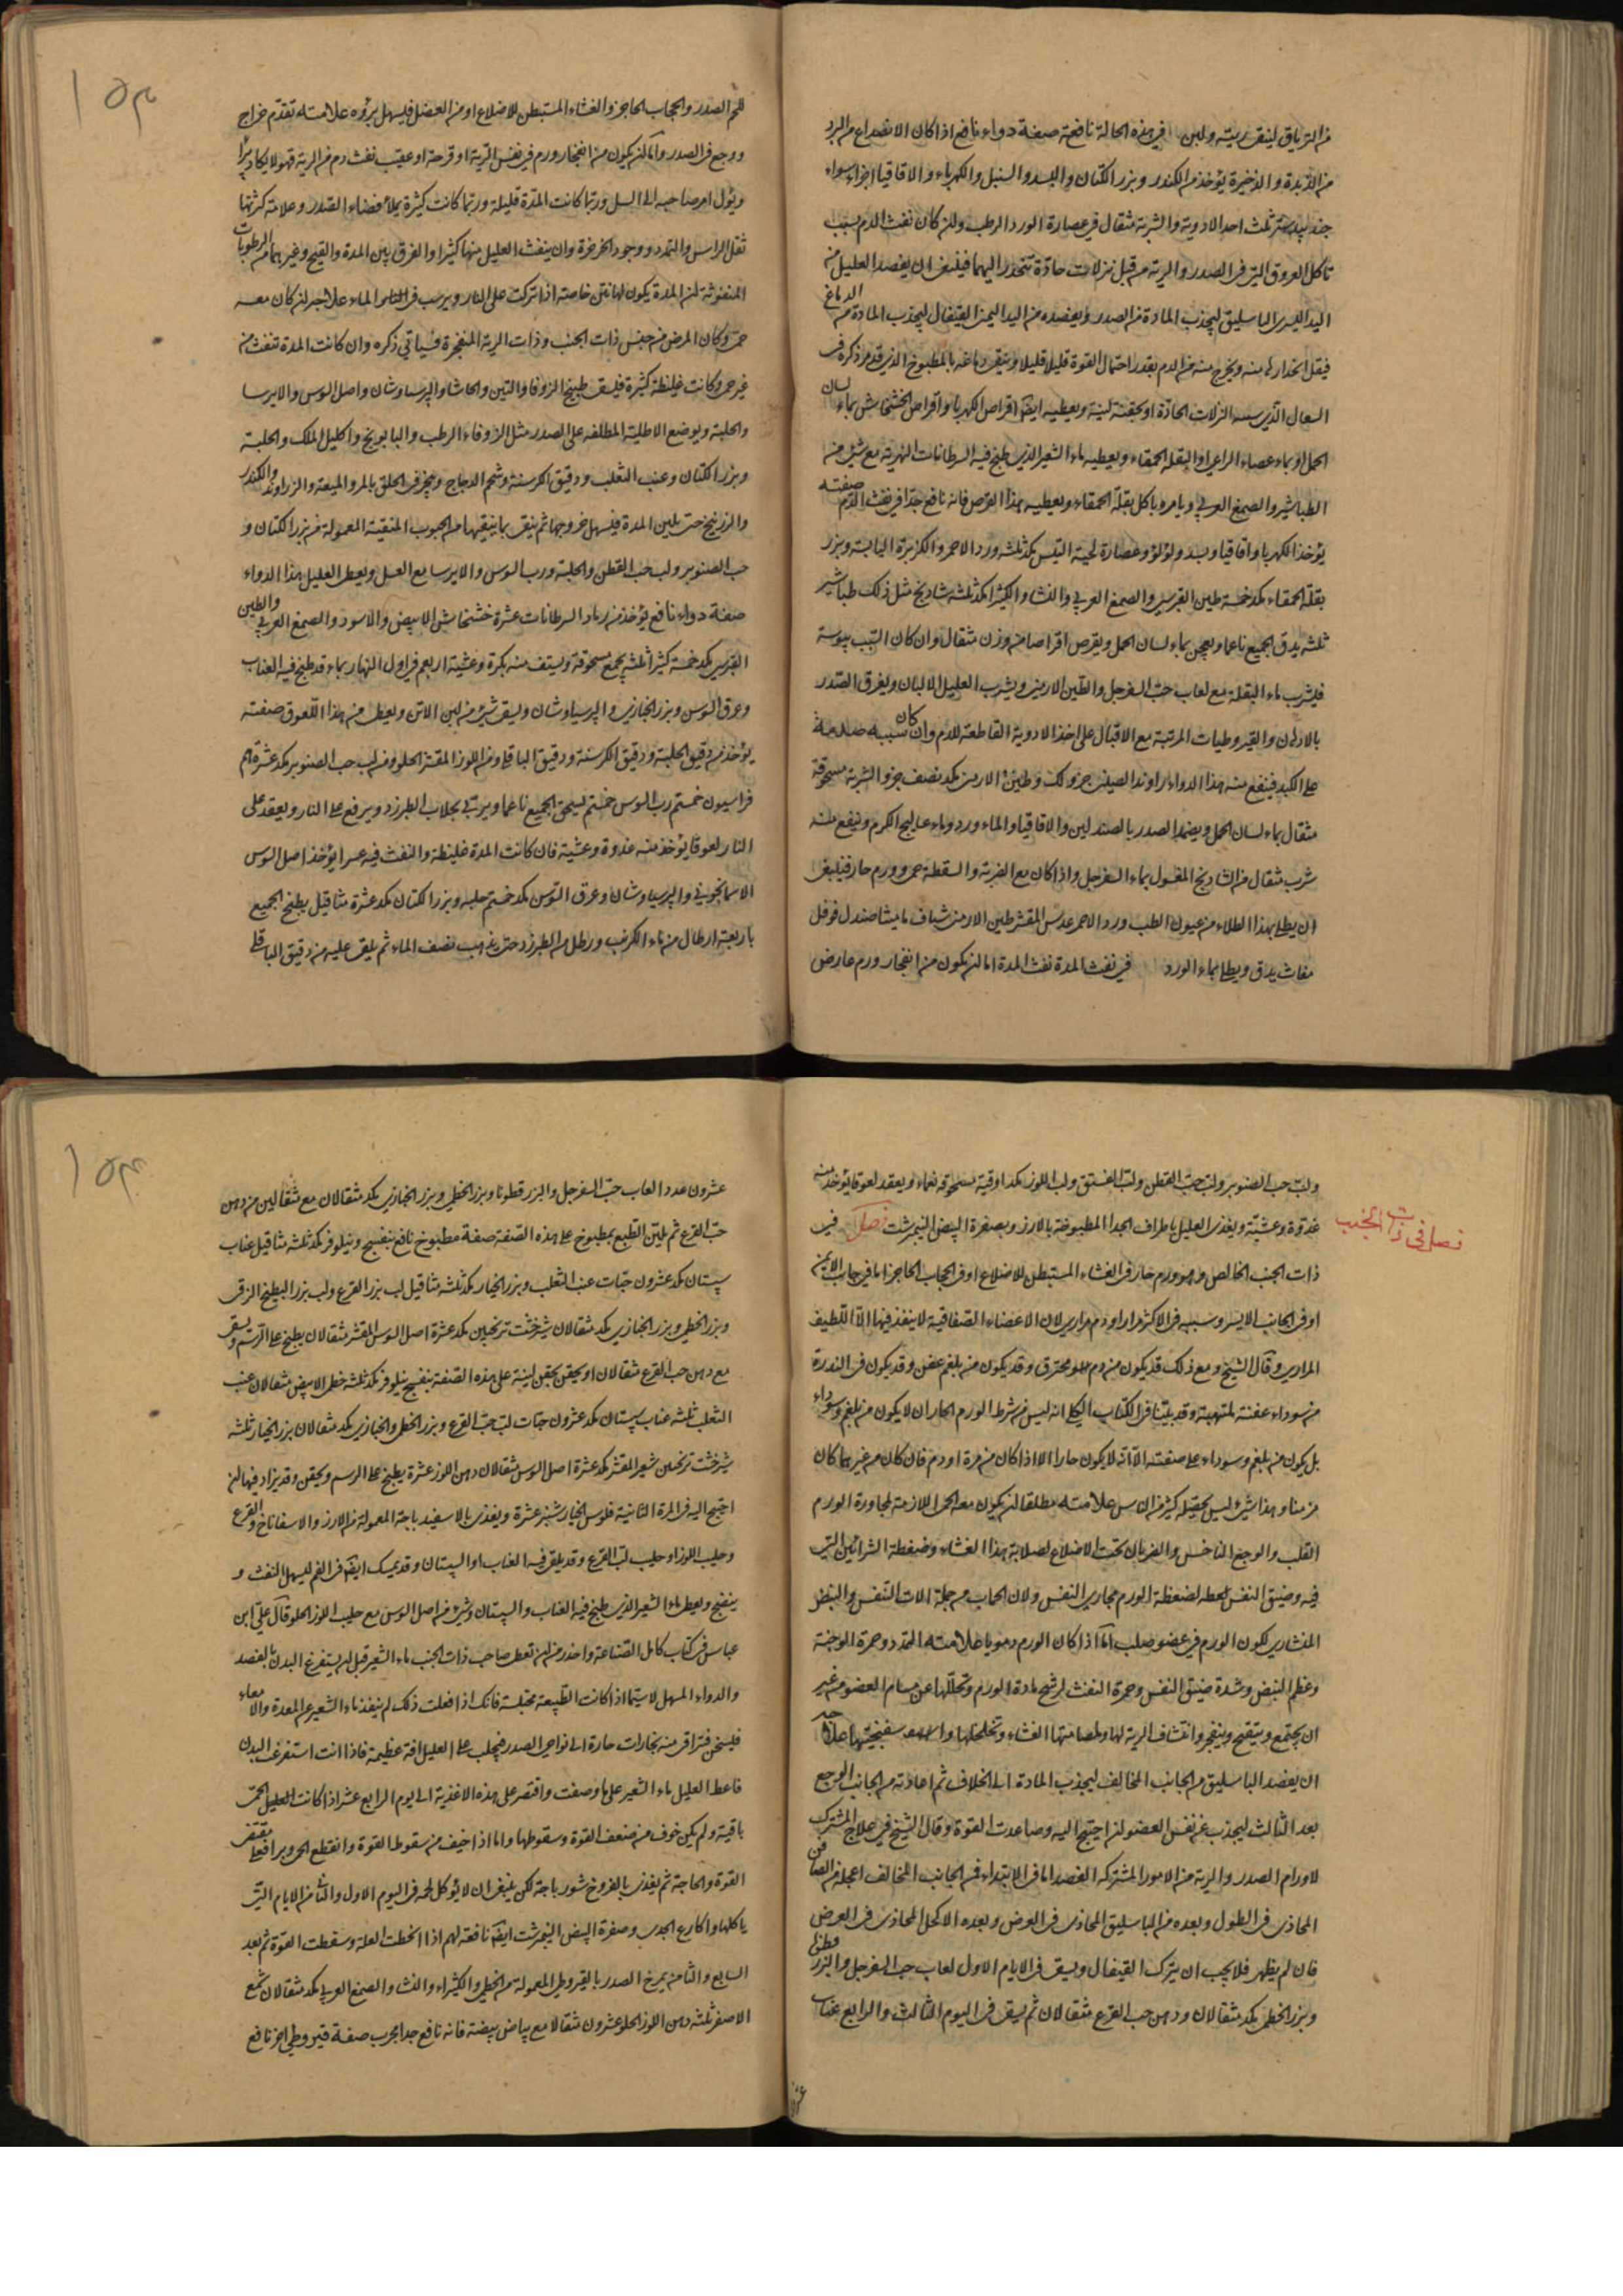 من الترياق لينقى ريته ولبن في هذه الحالة نافعة صفة دواء نافع اذا كان الانصداع من البرد
من الزبدة والذخيرة يؤخذ من الكندر وبزر الكتان والبسد والسنبل والكهرباء والاقاقيا اجزاء سواء
جندبيدستر ثلث احد الادوية والشربة مثقال في عصارة الورد الرطب وان كان نفث الدم بسبب
تاكل العروق التي في الصدر والرية من قبل نزلات حادّة تنحدر اليهما فينبغي ان يفصد العليل من
اليد اليسرى الباسليق ليجذب المادة من الصدر ويفصد من اليد اليمنى القيفال ليجذب المادة من الدماغ
فيقل انحدارها منه ويخرج منه من الدم بقدر احتمال القوة قليلا قليلا وينقى دماغه بالمطبوخ الذي قد مر ذكره في
السعال الذي سببه النزلات الحادّة او بحقنة لينة ويعطيه ايضا اقراص الكهربا واقراص الخشخاش بماء لسان
الحمل او بماء عصاء الراعي او البقلة الحمقاء ويعطيه ماء الشعير الذي طبخ فيه السرطانات النهرية مع شئ من
الطباشير والصمغ العربي ويامره باكل بقلة الحمقاء ويعطيه بهذا القرص فانه نافع جدّا في نفث الدم صفته
يؤخذ الكهربا واقاقيا وبسد ولؤلؤ وعصارة لحية التيس مكد ثلثه ورد الاحمر والكزبرة اليابسة وبزر
بقلة الحمقاء مكد خمسة طين القبرسي والصمغ العربي والنشا والكثيرا مكد ثلثه شادنج مثل ذلك طباشير
ثلثه يدق الجميع ناعما ويعجن بماء لسان الحمل ويقرص اقراصا من وزن مثقال وان كان السبب يبوسة
فليشرب ماء البقلة مع لعاب حبّ السفرجل والطين الارمني ويشرب العليل الالبان ويغرق الصدر
بالادهان والقيروطيات المرتبة مع الاقبال على اخذ الادوية القاطعة للدم وان كان سببه صدمة
على الكبد فينفع منه بهذا الدواء راوند الصيني جزو لك وطين الارمني مكد نصف جزو الشربة مسحوقة
مثقال بماء لسان الحمل ويضمد الصدر بالصندلين والاقاقيا والماء ورد وماء عساليج الكرم وينفع منه
شرب مثقال من الشادنج المغسول بماء السفرجل واذا كان مع الضربة والسقطة حمى وورم حار فينبغي
ان يطلى بهذا الطلاء من عيون الطب ورد الاحمر عدس المقشر طين الارمني شياف ماميثا صندل فوفل
مغاث يدق ويطلى بماء الورد في نفث المدة نفث المدة اما ان يكون من انفجار ورم عارض
للحم الصدر والحجاب الحاجز والغشاء المستبطن للاضلاع او من العضل فليسهل برؤه علامته تقدّم خراج
ووجع في الصدر واما ان يكون من انفجار ورم في نفس الرّية او قرحة او عقيب نفث دم من الرية فهو لا يكاد يبرأ
ويؤل امر صاحبه الى السل وربّما كانت المدّة قليلة وربّما كانت كثيرة يملأ فضاء الصدر وعلامة كثرتها
ثقل الراس والتمدد ووجود الخرخرة وان ينفث العليل منها كثيرا والفرق بين المدة والقيح وغيرهما من الرطوبات
المنفوثة ان المدة يكون لها نتن خاصته اذا تركت على النار ويرسب في الماء علاجه ان كان معه
حمى وكان المرض من جنس ذات الجنب وذات الرية المنفجرة فسياتي ذكره وان كانت المدة تنفث من
غير حمى وكانت غليظة كثيرة فليسق طبيخ الزوفا والتين والحاشا والبرسياوشان واصل السوس والايرسا
والحلبة ويوضع الاطلية الملطفه على الصدر مثل الزوفاء الرطب والبابونج واكليل الملك والحلبة
وبزر الكتان وعنب الثعلب ودقيق الكرسنة وشحم الدجاج ويبخر في الحلق بالمر والميعة والزراوند والكندر
والزرنيخ حتى يلين المدة فيسهل خروجها ثم ينقى بما ينقيها من الحبوب المنقية المعمولة من بزر الكتان و
حب الصنوبر ولب حب القطن والحلبة ورب السوس والايرسا مع العسل ويعطى العليل بهذا الدواء
صفة دواء نافع يؤخذ من رماد السرطانات عشرة خشخاش الابيض والاسود والصمغ العربي والطين
القبرسي مكد خمسة كثيرا ثلثه يجمع مسحوقة ويستف منه بكرة وعشية اربعة في اول النهار بماء قد طبخ فيه العناب
وعرق السوس وبزر الخبازي والبرسياوشان وليسق شئ من لبن الاتن ويعطى من بهذا اللعوق صفته
يؤخذ من دقيق الحلبة ودقيق الكرسنة ودقيق الباقلى ومن اللوز المقشر الحلو ومن لب حب الصنوبر مكد عشرة دراهم
فراسيون خمسة رب السوس خمسة يسحق الجميع ناعما ويربّى بجلاب الطبرزد ويرفع على النار ويعقد على
النار لعوقا يؤخذ منه غدوة وعشية فان كانت المدة غليظة والنفث فيه عسر يؤخذ اصل السوس
الاسمانجوني والبرسياوشان وعرق السوس مكد خمسة حلبه وبزر الكتان مكد عشرة مثاقيل يطبخ الجميع
باربعة ارطال من ماء الكرنب ورطل من الطبرزد حتى يذهب نصف الماء ثم يلقى عليه من دقيق الباقلى
ولب حب الصنوبر ولب حبّ القطن ولبّ الفستق ولب اللوز مكد اوقية مسحوقة نعما ويعقد لعوقا يؤخذ منه
غدوة وعشيّة ويغذى العليل باطراف الجدا المطبوخة بالارز وبصفرة البيض النيمرشت فصل في
فصل في ذات الجنب
ذات الجنب الخالص وهو ورم حار في الغشاء المستبطن للاضلاع او في الحجاب الحاجز اما في جانب الايمن
او في الجانب الايسر وسببه في الاكثر مرار او دم مراري لان الاعضاء الصفاقية لا ينفذ فيها الّا اللّطيف
المراري وقال الشيخ ومع ذلك قد يكون من دم محترق وقد يكون من بلغم عفن وقد يكون في الندرة
من سوداء عفنة ملتهبة وقد بيّنا في الكتاب الكلي انه ليس من شرط الورم الحار ان لا يكون من بلغم وسوداء
بل يكون من بلغم وسوداء على صفته الّا انّه لا يكون حارا الا اذا كان من مرة او دم فان كان من غيرهما كان
مزمنا وبهذا شئ ليس يحصله كثير من الناس علامته مطلقا ان يكون معه الحمى اللازمة لمجاورة الورم
القلب والوجع الناخس والضربان تحت الاضلاع لصلابة بهذا الغشاء وضغطة الشرائين التي
فيه وضيق النفس لضغطة الورم مجاري النفس ولان الحجاب من جملة الات التنفس والنبض
المنشاري لكون الورم في عضو صلب اما اذا كان الورم دمويا علامته التمدد وحمرة الوجنة
وعظم النبض وشدة ضيق النفس وحمرة النفث لرشح مادة الورم وتحللها عن مسام العضو من غير
ان يجتمع ويتقيح وينفجر وانتشاف الرية لها ولمصامتها الغشاء وتخلخلها واسفنجيتها علاجه
ان يفصد الباسليق من الجانب المخالف ليجذب المادة الى الخلاف ثم اعادته من الجانب الوجع
بعد الثالث ليجذب عن نفس العضو ان احتيج اليه وصاعدت القوة وقال الشيخ في علاج المشترك
لاورام الصدر والرية من الامور المشتركه الفصد اما في الابتداء فمن الجانب المخالف اعجله من الصافن
المحاذى في الطول وبعده من الباسليق المحاذى في العرض وبعده الاكحل المحاذى في العرض
فان لم يظهر فلا يجب ان يترك القيفال ويسقى في الايام الاول لعاب حب السفرجل والبزر قطونا
وبزر الخطمى مكد مثقالان ودهن حب القرع مثقالان ثم يسقى في اليوم الثالث والرابع عناب
عشرون عددا لعاب حبّ السفرجل والبزر قطونا وبزر الخطمى وبزر الخبازي مكد مثقالان مع مثقالين من دهن
حبّ القرع ثم يلين الطبع بمطبوخ على بهذه الصفة صفة مطبوخ نافع بنفسج ونيلوفر مكد ثلثه مثاقيل عناب
سپستان مكد عشرون حبّات عنب الثعلب وبزر الخيار مكد ثلثه مثاقيل لب بزر القرع ولب بزر البطيخ الزقى
وبزر الخطمى وبزر الخبازي مكد مثقالان شيرخشت ترنجبين مكد عشرة اصل السوس المقشر مثقالان يطبخ على الرسم ويسقى
مع دهن حب القرع مثقالان او يحقن بحقن لينة على هذه الصفة بنفسج نيلوفر مكد ثلثه خطمى الابيض مثقالان عنب
الثعلب ثلثه عناب سپستان مكد عشرون حبّات لبّ حبّ القرع وبزر الخطمى والخبازي مكد مثقالان بزر الخيار ثلثه
شيرخشت ترنجبين شعير المقشر مكد عشرة اصل السوس مثقالان دهن اللوز عشرة يطبخ على الرسم ويحقن وقد يزاد فيها ان
احتيج اليه في المرة الثانية فلوس الخيار شنبر عشرة ويغذى بالاسفيدباجة المعمولة من الارز والاسفاناخ والقرع
وحليب اللوز او حليب لب القرع وقد يلقى فيه العناب او السپستان وقد يمسك ايضا في الفم ليسهل النفث و
ينضج ويعطى ماء الشعير الذي طبخ فيه العناب والسپستان وشئ من اصل السوس مع حليب اللوز الحلو وقال عليّ ابن
عباس في كتاب كامل الصّناعة واحذر من ان تعطى صاحب ذات الجنب ماء الشعير قبل ان يستفرغ البدن بالفصد
والدواء المسهل لاسيّما اذا كانت الطبيعة محتبسة فانك اذا فعلت ذلك لم ينفذ ماء الشعير عن المعدة والامعاء
فليسخن فتراقى منه بخارات حارة الى نواحي الصدر فيجلب على العليل افة عظيمة فاذا انت استفرغت البدن
فاعط العليل ماء الشعير على ما وصفت واقتصر على بهذه الاغذية الى اليوم الرابع عشر اذا كانت الحمى
باقية ولم يكن خوف من ضعف القوة وسقوطها واما اذا خيف من سقوط القوة وانقطع الحمى
القوة والحاجة ثم يغذى بالفروخ شورباجة لكن ينبغي ان لا يؤكل لحمه في اليوم الاول والثاني من الايام التي
ياكلها واكارع الجدى وصفرة البيض النيمرشت ايضا نافعة لهم اذا انحطت العلة وسقطت القوّة ثم بعد
السابع والثامن يمرخ الصدر بالقيروطي المعمولة من الخطمى والكثيراء والنشا والصمغ العربي مكد مثقالان شمع
الاصفر ثلثه دهن اللوز الحلو عشرون مثقالا مع بياض بيضته فانه نافع جدا مجرب صفة قيروطي اخر نافع